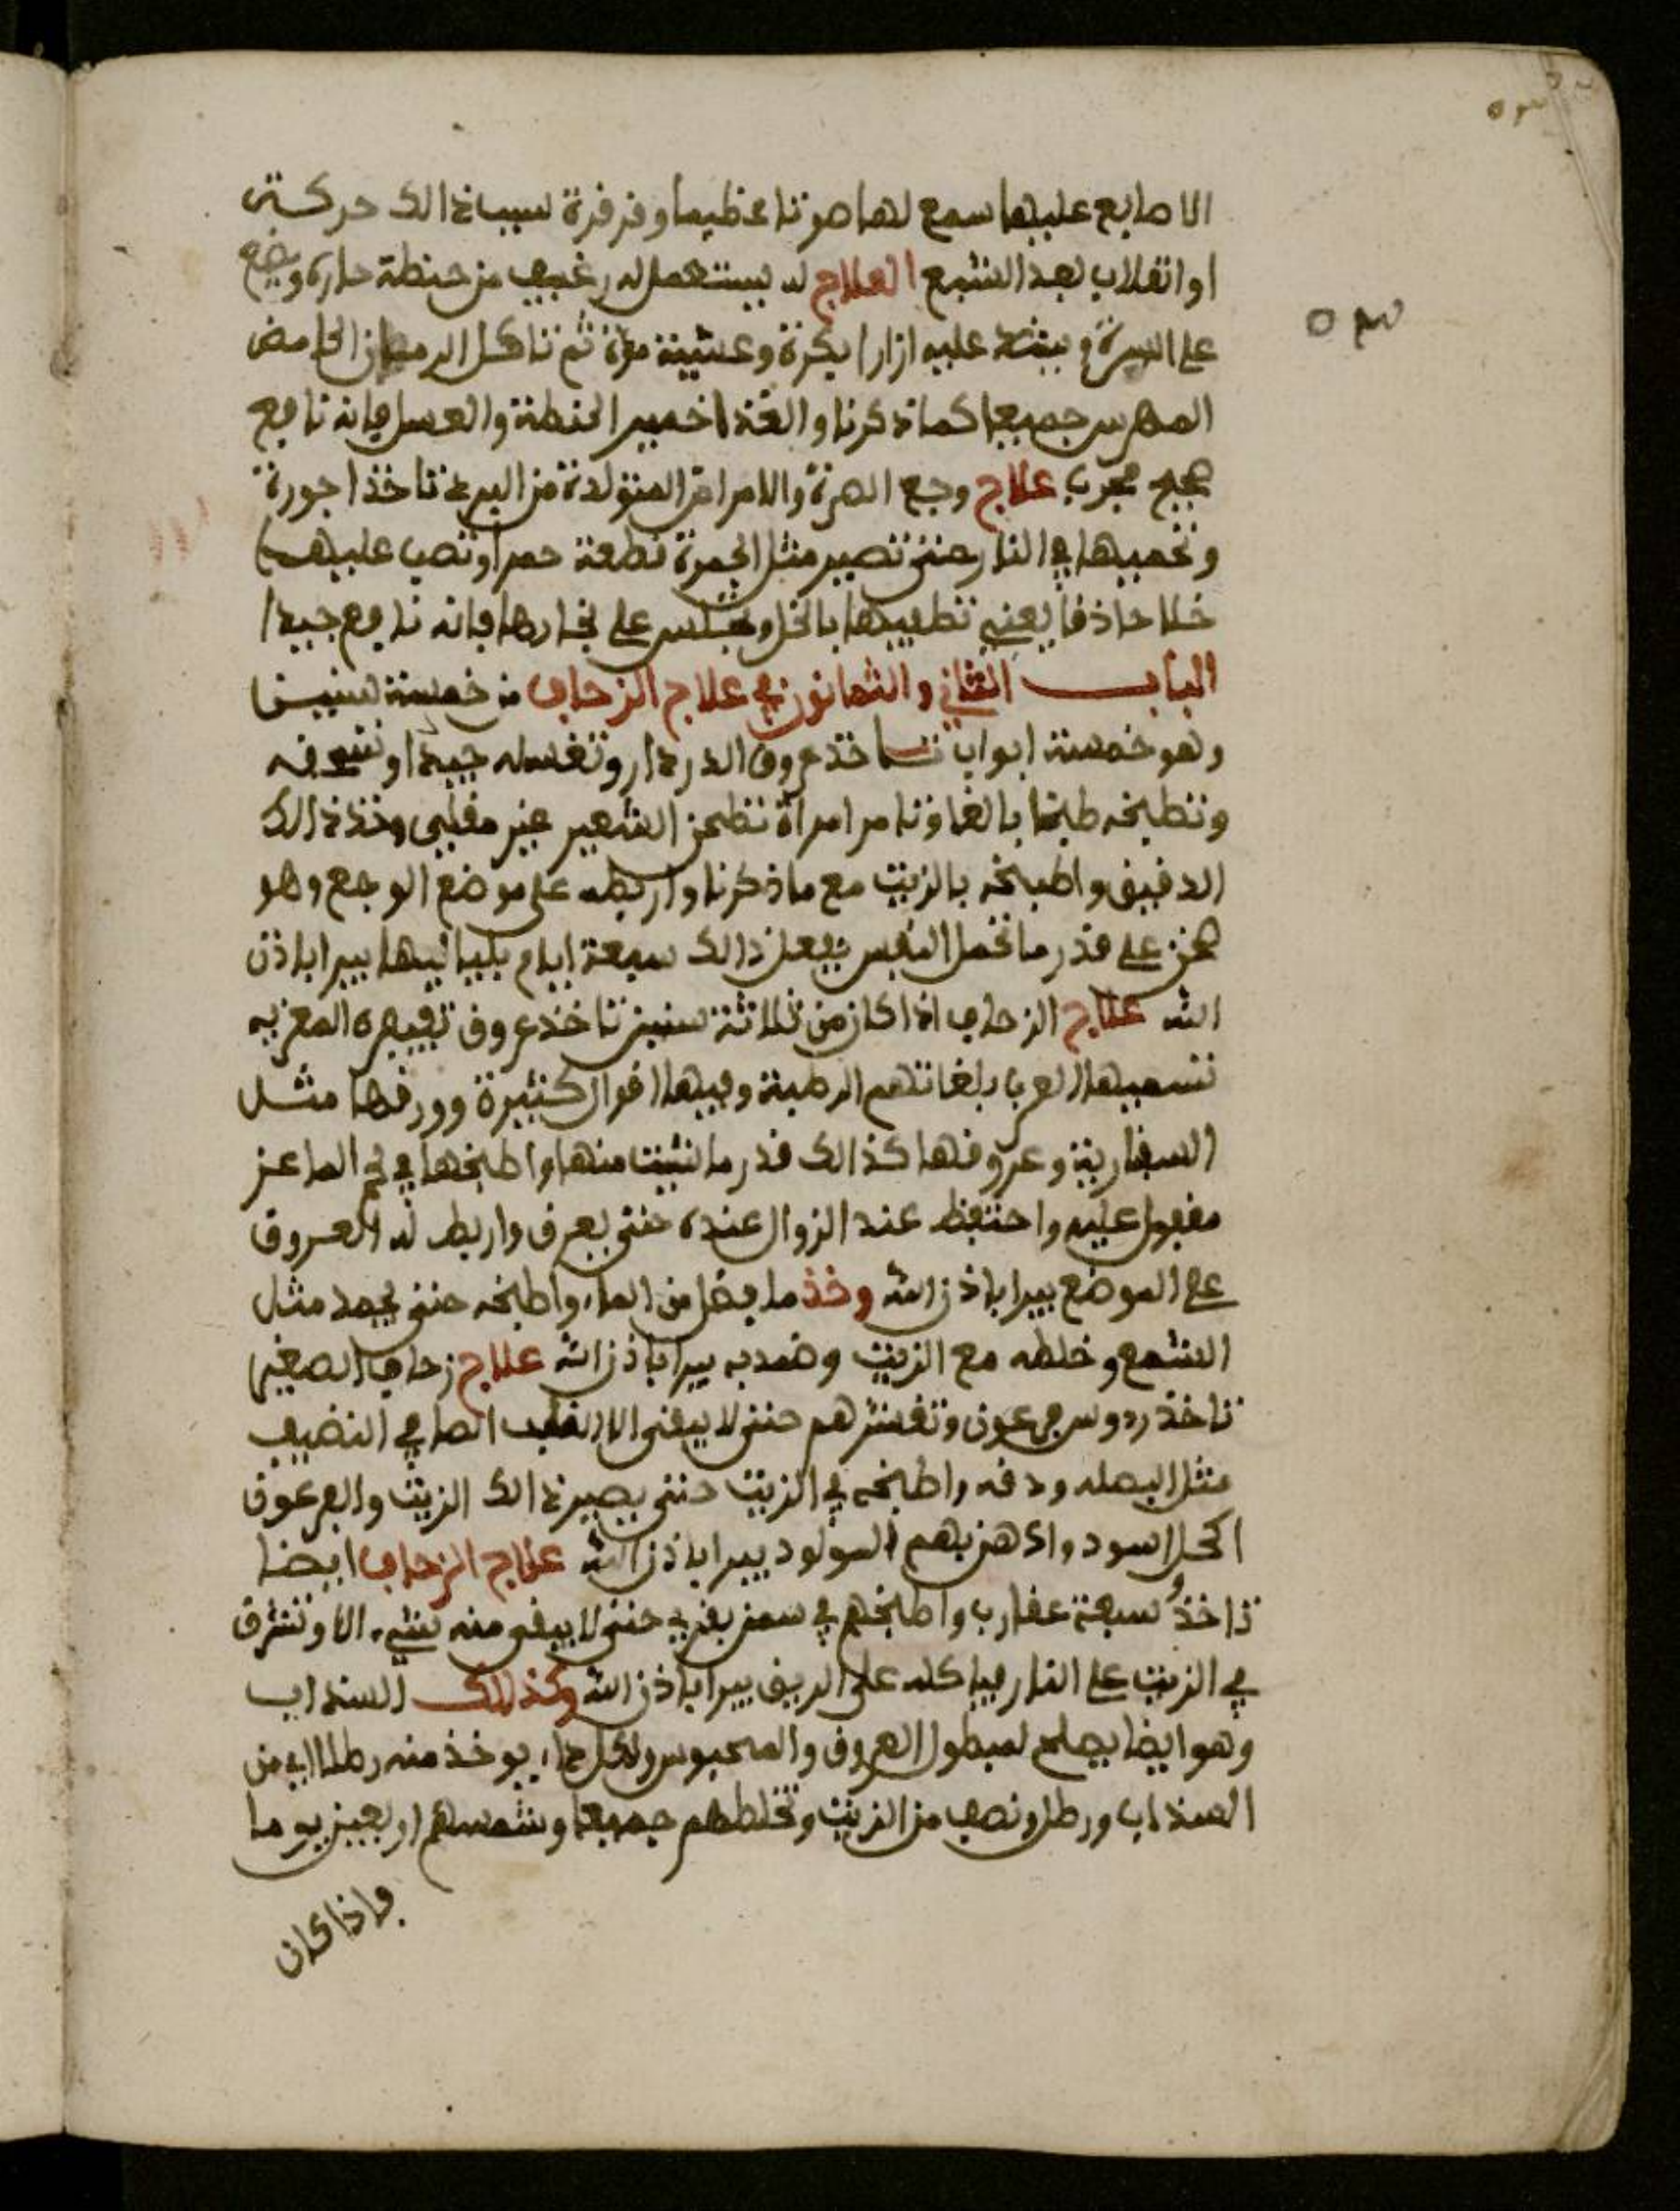 ٥٣
الاصابع عليها سمع لها صوتا عظيما وقرقرة لسبب ذالك حركته
او انقلاب لعند الشبع العلاج له يستعمل له رغيف من حنطة حارة ويضع
٥٣
على السرة ويشد عليه ازارا بكرة وعشية مرة ثم تاكل الرمان الحامض
المهرس جميعا كما ذكرنا والغذا خمير الحنطة والعسل فانه نافع
صحيح مجرب علاج وجع السرة والامراض المتولدة من البرد تاخذ اجورة
وتحميها في النار حتى تصير مثل الجمرة قطعة حمرا وتصب عليها
خلا حاذقا يعني تطفيها بالخل وتجلس على بخارها فانه نافع جيدا
الباب الثاني والثمانون في علاج الزحاف من خمسة سنين
وهو خمسة ابواب تاخذ عروق الدردار وتغسله جيدا وتسحقه
وتطبخه طبخا بالغا وتامر امراة تطحن الشعير غير مقلي وخذ ذالك
الدقيق واطبخه بالزيت مع ما ذكرنا واربطه على موضع الوجع وهو
سخن على قدر ما تحمل النفس يفعل ذالك سبعة ايام بلياليها يبرا باذن
الله علاج الزحاف اذا كان من ثلاثة سنين تاخذ عروق المغربية
تسميها العرب بلغاتهم وفيها اقوال كثيرة وورقها مثل
وعروقها كذالك قدر ما شيت منها واطبخها في لحم الماعز
مفعول عليه واحتفظ عند الزوال عنده حتى يعرق واربط له العروق
على الموضع يبرا باذن الله وخذ ما يفضل من الماء واطبخه حتى يجمد مثل
الشمع وخلطه مع الزيت وضمد به يبرا باذن الله علاج زحاف الصغير
تاخذ روس فرعون وتقشرهم حتى لا يبقى الا القلب الصافي النضيف
مثل البصله ودقه واطبخه في الزيت حتى يصير ذالك الزيت والفرعون
اكحل اسود وادهن بهم المولود يبرا باذن الله علاج الزحاف ايضا
تاخذ سبعة عقارب واطبخهم في سمن بقري حتى لا يبقى منه شيء الا وتشرق
في الزيت على النار فياكله على الريق يبرا باذن الله وكذلك السذاب
وهو ايضا يصلح لمبطول العروق والمحبوس ولكل داء يوخذ منه رطلا اي من
السذاب ورطل ونصف من الزيت وتخلطهم جميعا وشمسهم اربعين يوما
فاذا كان